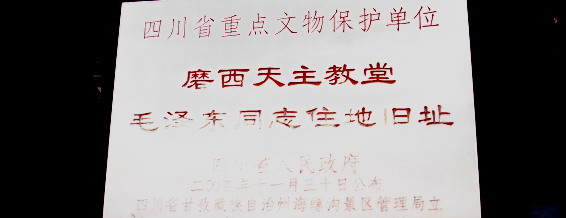 四川省重点文物保护单位
磨西天主教堂
毛泽东同志住地旧址
四川省人民政府
二〇〇 年十一月三十日公布
四川省甘孜藏族自治州海螺沟景区管理局立